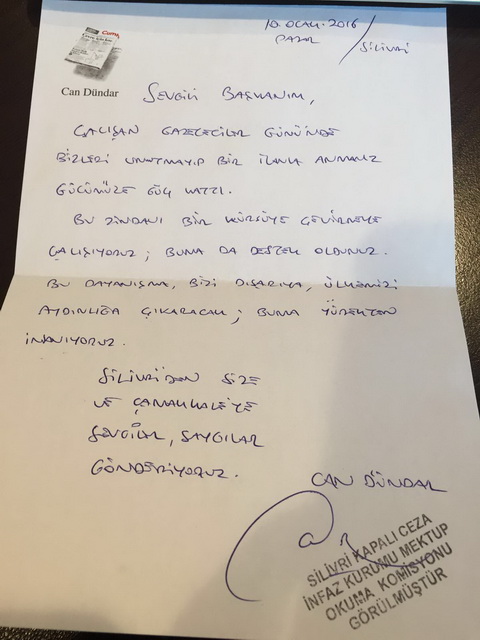 10. OCAK. 2016
PAZAR / SİLİVRİ
Can Dündar
SEVGİLİ BAŞKANIM,
ÇALIŞAN GAZETECİLER GÜNÜNDE
BİZLERİ UNUTMAYIP BİR İLANLA ANMANIZ
GÜCÜMÜZE GÜÇ KATTI.
BU ZİNDANI BİR KÜRSÜYE ÇEVİRMEYE
ÇALIŞIYORUZ; BUNA DA DESTEK OLDUNUZ.
BU DAYANIŞMA, BİZİ DIŞARIYA, ÜLKEMİZİ
AYDINLIĞA ÇIKARACAK; BUNA YÜREKTEN
İNANIYORUZ.
SİLİVRİ'DEN SİZE
VE ÇANAKKALE'YE
SEVGİLER, SAYGILAR
GÖNDERİYORUZ.
CAN DÜNDAR
SİLİVRİ KAPALI CEZA
İNFAZ KURUMU MEKTUP
OKUMA KOMİSYONU
GÖRÜLMÜŞTÜR